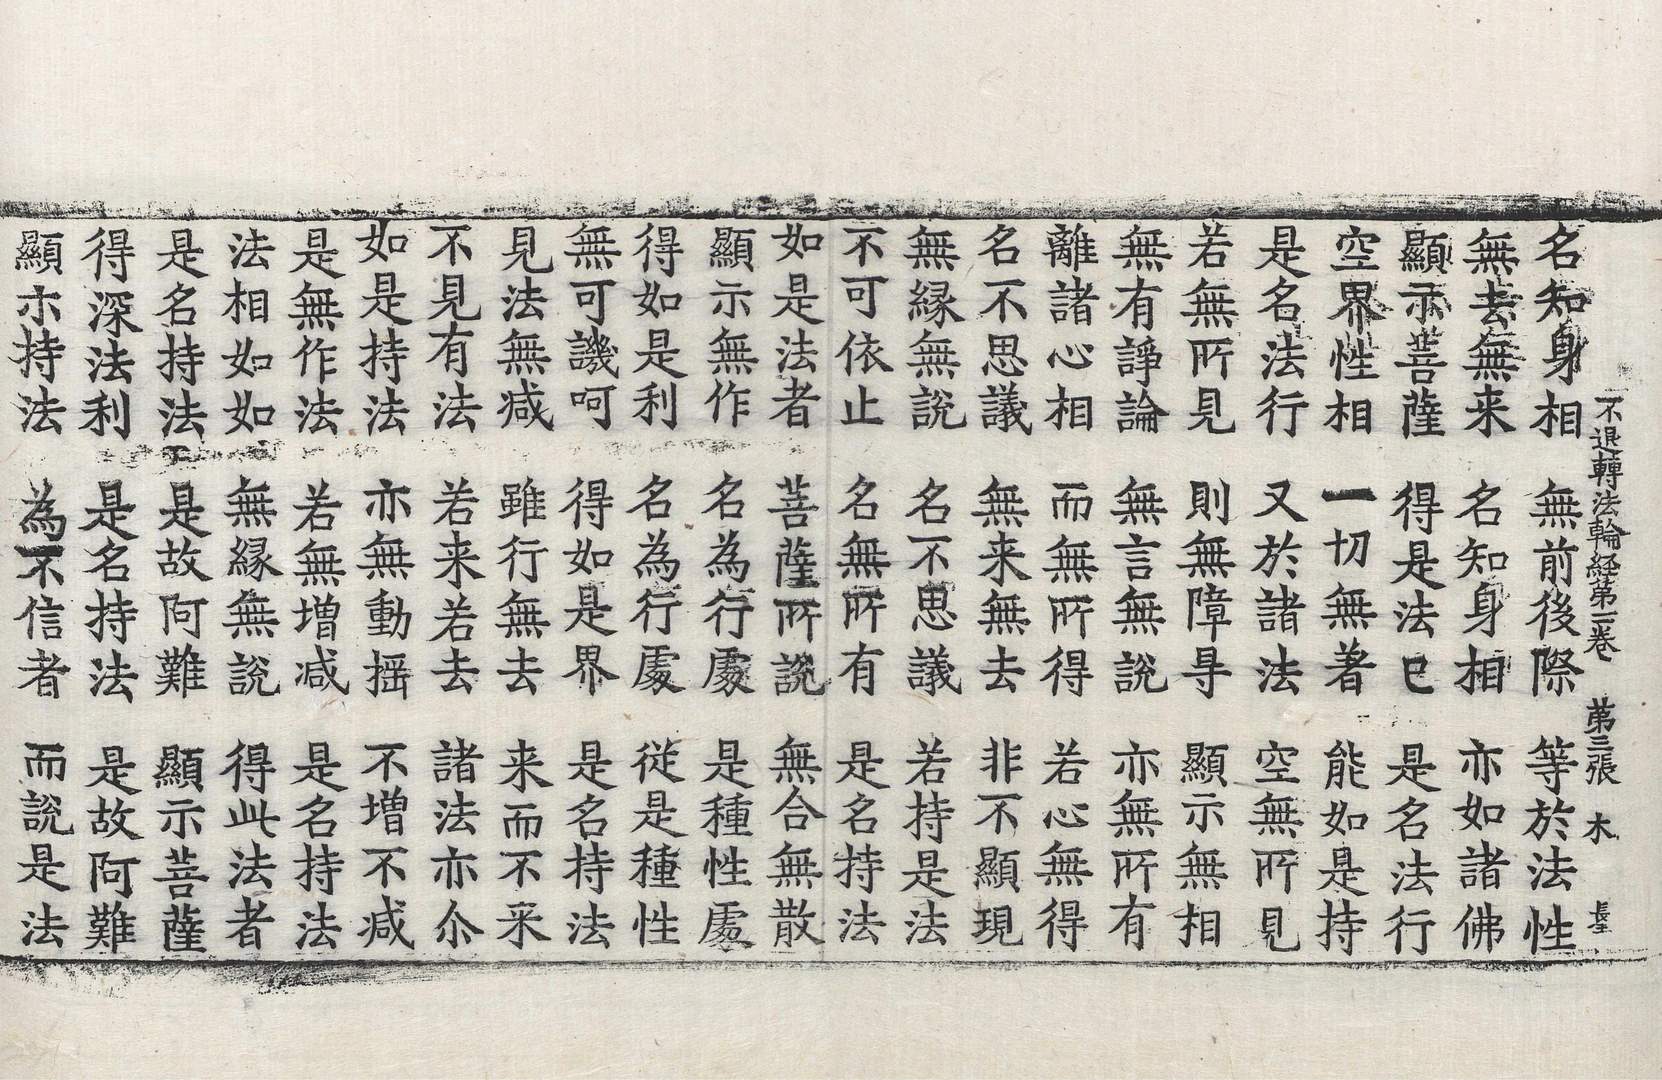 不退轉法輪経第二卷　第三張　木
名知身相　無前後際　等於法性
無去無来　名知身相　亦如諸佛
顯示菩薩　得是法已　是名法行
空界性相　一切無著　能如是持
是名法行　又於諸法　空無所見
若無所見　則無障㝵　顯示無相
無有諍論　無言無說　亦無所有
離諸心相　而無所得　若心無得
名不思議　無来無去　非不顯現
無縁無說　名不思議　若持是法
不可依止　名無所有　是名持法
如是法者　菩薩所說　無合無散
顯示無作　名為行處　是種性處
得如是利　名為行處　従是種性
無可譏呵　得如是界　是名持法
見法無減　雖行無去　来而不来
不見有法　若来若去　諸法亦尒
如是持法　亦無動揺　不増不減
是無作法　若無増減　是名持法
法相如如　無縁無說　得此法者
是名持法　是故阿難　顯示菩薩
得深法利　是名持法　是故阿難
顯示持法　為不信者　而說是法